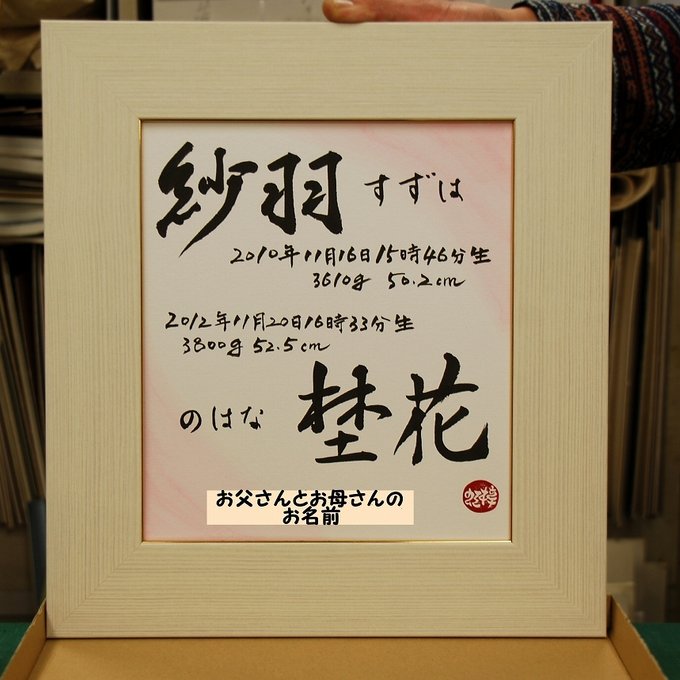 紗羽 すずは
2010年11月16日15時46分生
3610g 50.2cm
2012年11月20日16時33分生
3800g 52.5cm
のはな 埜花
お父さんとお母さんの
お名前